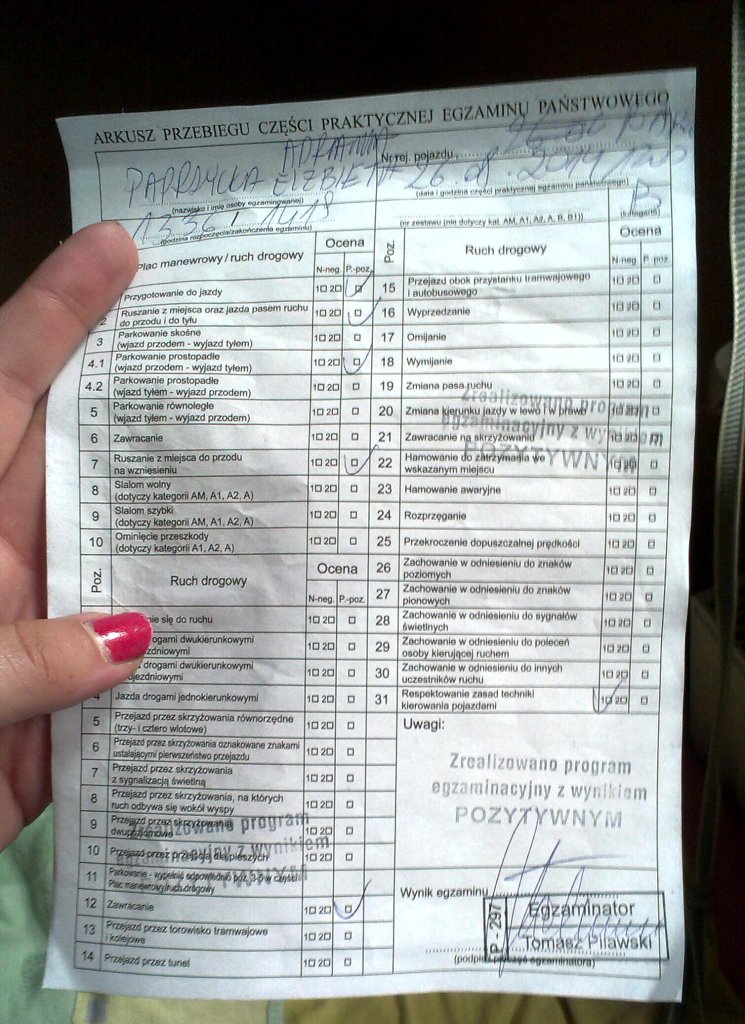 ARKUSZ PRZEBIEGU CZĘŚCI PRAKTYCZNEJ EGZAMINU PAŃSTWOWEGO
ADRIANNA
Nr rej. pojazdu
26.08.2014
(data i godzina części praktycznej egzaminu państwowego)
(nazwisko i imię osoby egzaminowanej)
B
(kategoria)
1336 1418
(godzina rozpoczęcia/zakończenia egzaminu)
(nr zestawu (nie dotyczy kat. AM, A1, A2, A, B, B1))
Plac manewrowy / ruch drogowy
Ocena
N-neg. P.-poz.
Przygotowanie do jazdy 1 2
2 Ruszanie z miejsca oraz jazda pasem ruchu do przodu i do tyłu 1 2
3 Parkowanie skośne
(wjazd przodem - wyjazd tyłem) 1 2
4.1 Parkowanie prostopadłe
(wjazd przodem - wyjazd tyłem) 1 2
4.2 Parkowanie prostopadłe
(wjazd tyłem - wyjazd przodem) 1 2
5 Parkowanie równoległe
(wjazd tyłem - wyjazd przodem) 1 2
6 Zawracanie 1 2
7 Ruszanie z miejsca do przodu
na wzniesieniu 1 2
8 Slalom wolny
(dotyczy kategorii AM, A1, A2, A) 1 2
9 Slalom szybki
(dotyczy kategorii AM, A1, A2, A) 1 2
10 Ominięcie przeszkody
(dotyczy kategorii A1, A2, A) 1 2
Poz. Ruch drogowy Ocena
N-neg. P.-poz.
się do ruchu 1 2
drogami dwukierunkowymi 1 2
drogami dwukierunkowymi 1 2
4 Jazda drogami jednokierunkowymi 1 2
5 Przejazd przez skrzyżowania równorzędne
(trzy- i cztero wlotowe) 1 2
6 Przejazd przez skrzyżowania oznakowane znakami
ustalającymi pierwszeństwo przejazdu 1 2
7 Przejazd przez skrzyżowania
z sygnalizacją świetlną 1 2
8 Przejazd przez skrzyżowania, na których
ruch odbywa się wokół wyspy 1 2
9 Przejazd przez skrzyżowania
dwupoziomowe 1 2
10 Przejazd przez przejścia dla pieszych 1 2
11 Parkowanie - wypełnić odpowiednio poz. 3-5 w części:
Plac manewrowy/ruch drogowy
12 Zawracanie 1 2
13 Przejazd przez torowisko tramwajowe
i kolejowe 1 2
14 Przejazd przez tunel 1 2
Zrealizowano program
egzaminacyjny z wynikiem
POZYTYWNYM
Poz. Ruch drogowy Ocena
N-neg. P.-poz.
15 Przejazd obok przystanku tramwajowego
i autobusowego 1 2
16 Wyprzedzanie 1 2
17 Omijanie 1 2
18 Wymijanie 1 2
19 Zmiana pasa ruchu 1 2
20 Zmiana kierunku jazdy w lewo i w prawo 1 2
21 Zawracanie na skrzyżowaniu 1 2
22 Hamowanie do zatrzymania we
wskazanym miejscu 1 2
Zrealizowano program
egzaminacyjny z wynikiem
POZYTYWNYM
23 Hamowanie awaryjne 1 2
24 Rozprzęganie 1 2
25 Przekroczenie dopuszczalnej prędkości 1 2
26 Zachowanie w odniesieniu do znaków
poziomych 1 2
27 Zachowanie w odniesieniu do znaków
pionowych 1 2
28 Zachowanie w odniesieniu do sygnałów
świetlnych 1 2
29 Zachowanie w odniesieniu do poleceń
osoby kierującej ruchem 1 2
30 Zachowanie w odniesieniu do innych
uczestników ruchu 1 2
31 Respektowanie zasad techniki
kierowania pojazdami 1 2
Uwagi:
Zrealizowano program
egzaminacyjny z wynikiem
POZYTYWNYM
Wynik egzaminu
P - 297
Egzaminator
Tomasz Pilawski
(podpis i pieczęć egzaminatora)